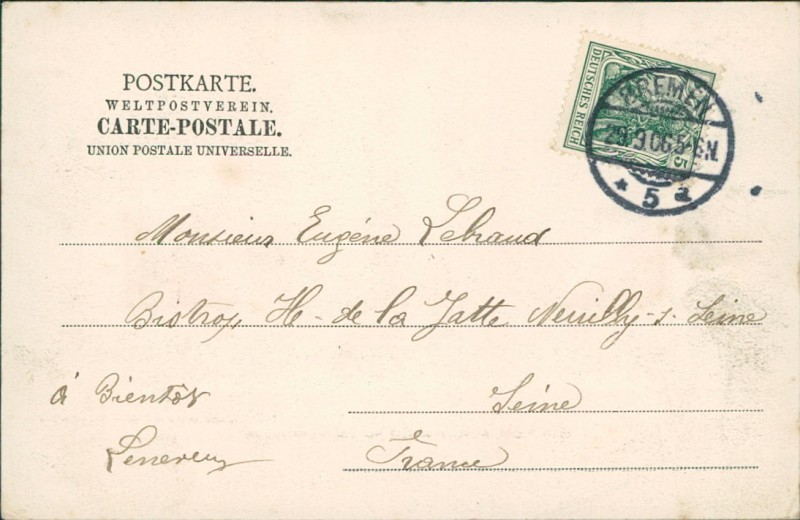 POSTKARTE.
WELTPOSTVEREIN.
CARTE-POSTALE.
UNION POSTALE UNIVERSELLE.
DEUTSCHES REICH
5
BREMEN
29.9.06.5-6N.
* 5 a
Monsieur Eugène Lebraud
Bistrop, H- de la Jatte Neuilly-s. Seine
à Bientôt
Seine
France